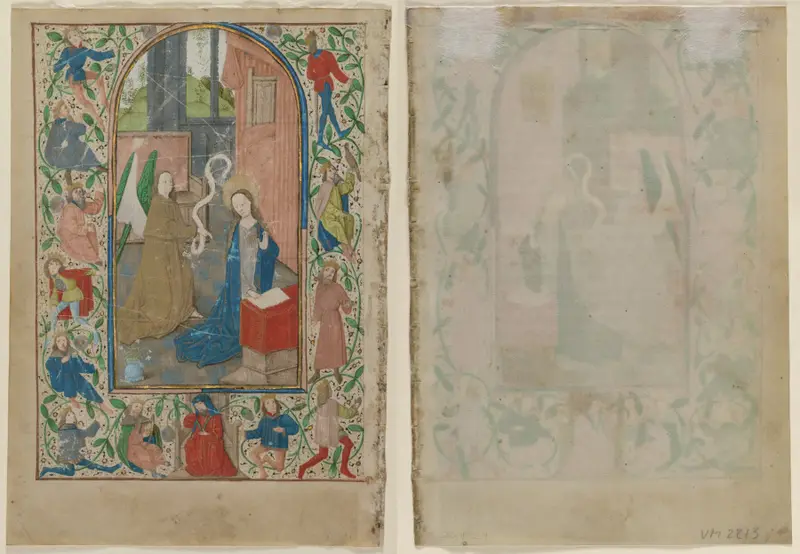 VM 2813